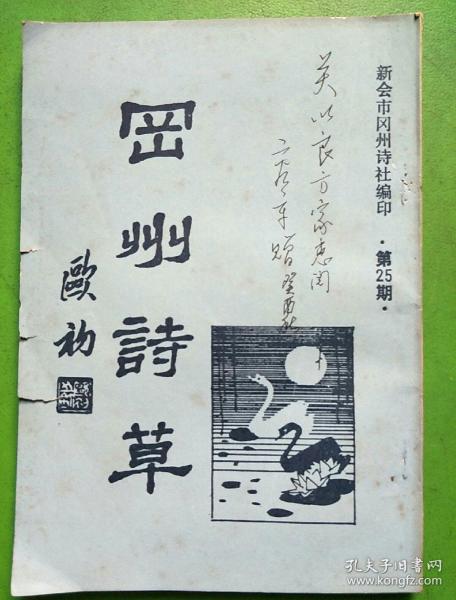 新会市冈州诗社编印·第25期·
关以良方家惠阅
赠 癸酉秋
岡州詩草
歐初
孔夫子旧书网
www.kongfz.com